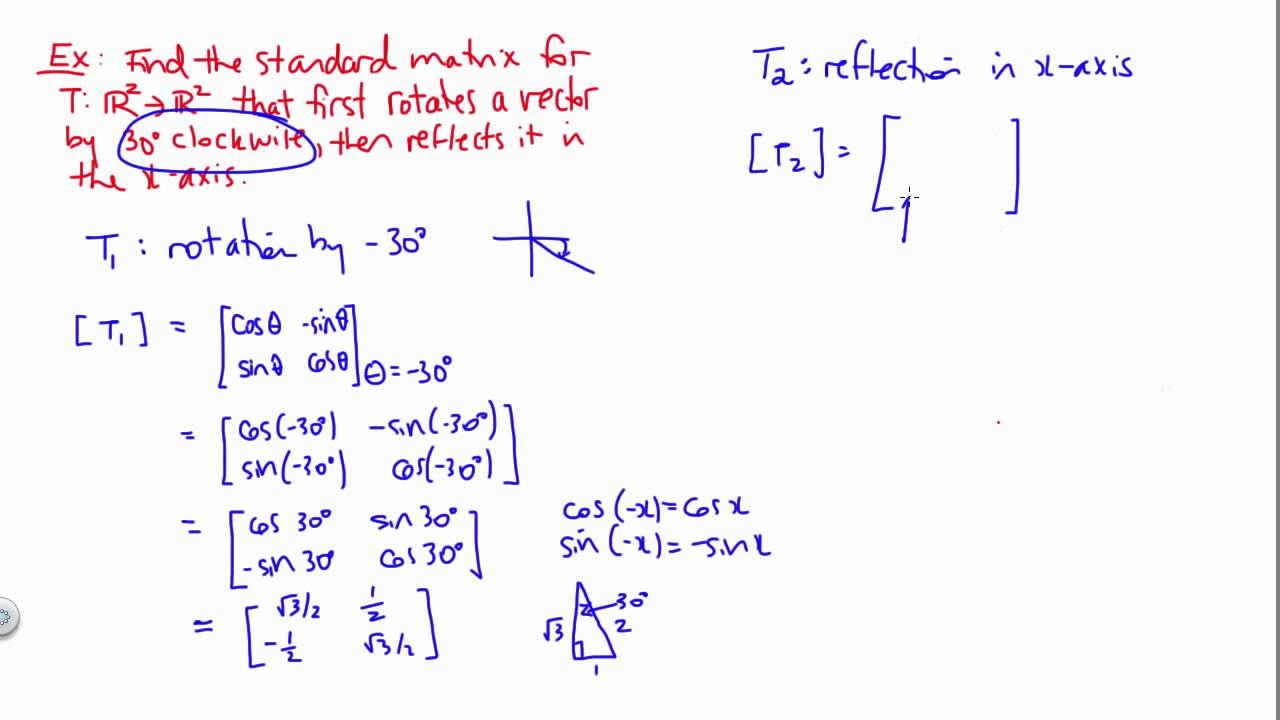 Ex: Find the standard matrix for
T: ℝ² → ℝ² that first rotates a vector
by 30° clockwise, then reflects it in
the x-axis.
T₁ : rotation by -30°
[T₁] = [cosθ -sinθ
sinθ cosθ] θ = -30°
= [cos(-30°) -sin(-30°)
sin(-30°) cos(-30°)]
= [cos 30° sin 30°
-sin 30 cos 30°]
cos(-x) = cos x
sin(-x) = -sin x
= [√3/2 1/2
-1/2 √3/2]
30°
√3
2
1
T₂ : reflection in x-axis
[T₂] = [ ]